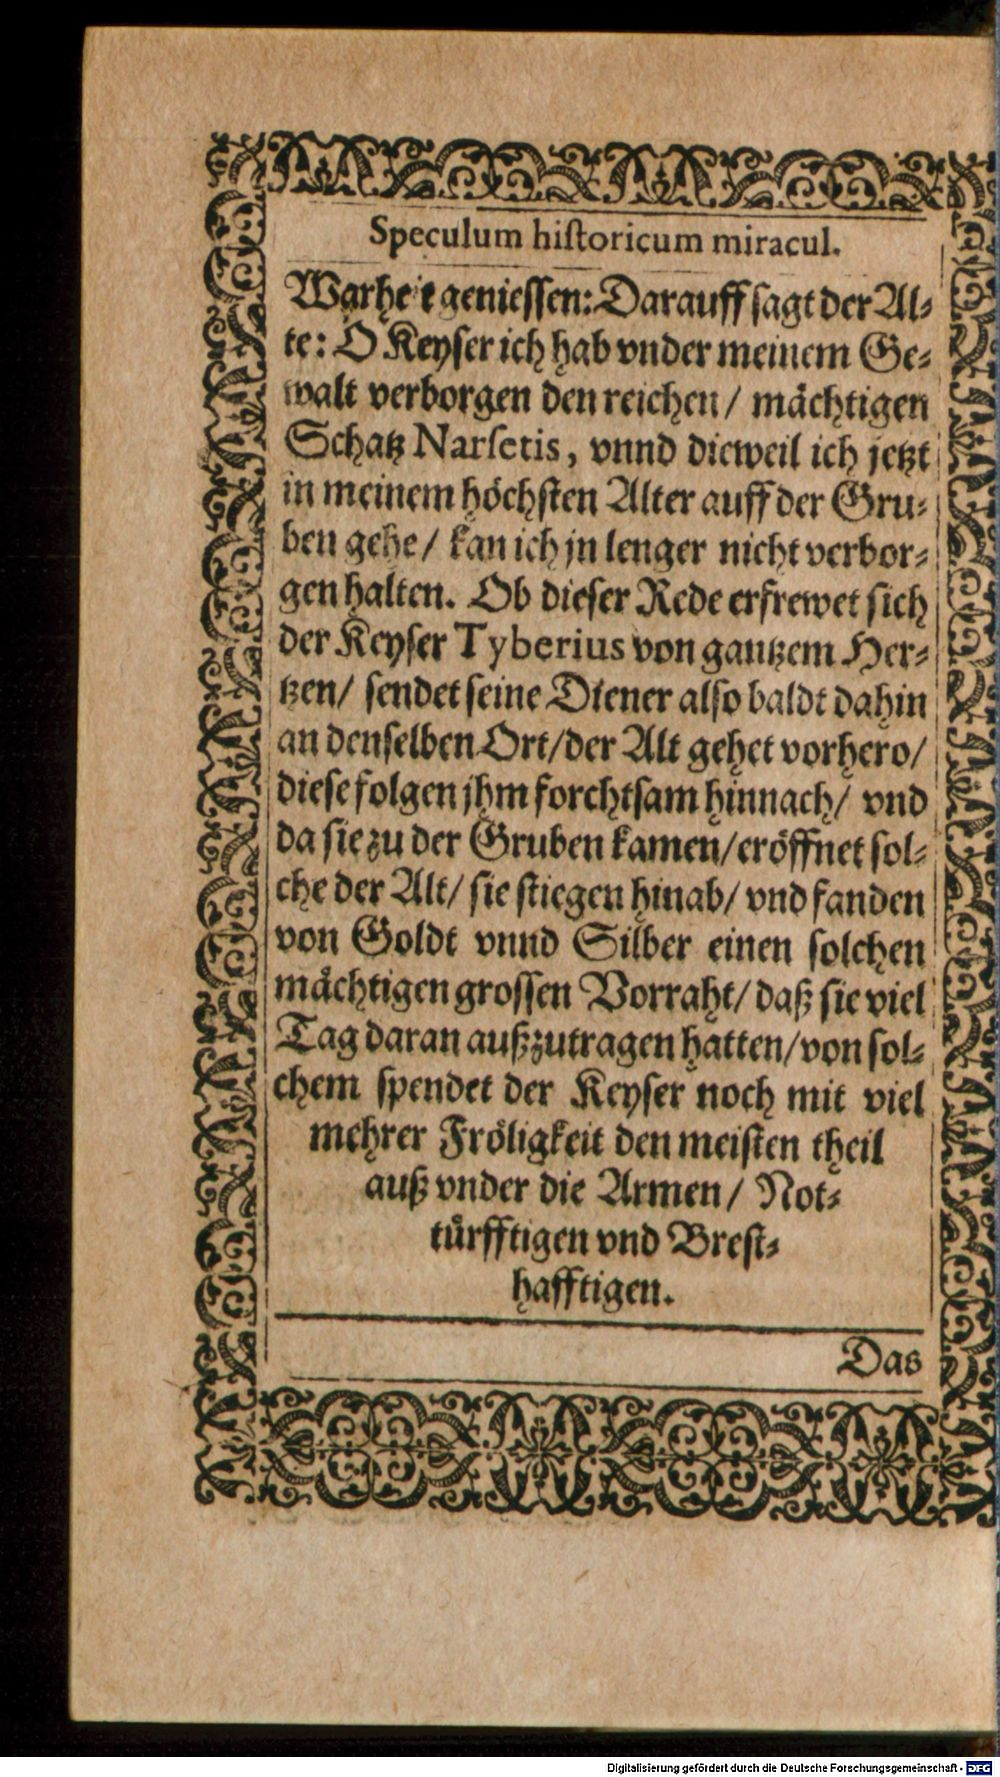 Speculum historicum miracul.
Warheit geniessen: Darauff sagt der Al-
te: O Keyser ich hab vnder meinem Ge-
walt verborgen den reichen/ mächtigen
Schatz Narsetis, vnnd dieweil ich jetzt
in meinem höchsten Alter auff der Gru-
ben gehe/ kan ich jn lenger nicht verbor-
gen halten. Ob dieser Rede erfrewet sich
der Keyser Tyberius von gantzem Her-
tzen/ sendet seine Diener also baldt dahin
an denselben Ort/ der Alt gehet vorhero/
diese folgen jhm forchtsam hinnach/ vnd
da sie zu der Gruben kamen/ eröffnet sol-
che der Alt/ sie stiegen hinab/ vnd fanden
von Goldt vnnd Silber einen solchen
mächtigen grossen Vorraht/ daß sie viel
Tag daran außzutragen hatten/ von sol-
chem spendet der Keyser noch mit viel
mehrer Fröligkeit den meisten theil
auß vnder die Armen/ Not-
türfftigen vnd Brest-
hafftigen.
Das
Digitalisierung gefördert durch die Deutsche Forschungsgemeinschaft - DFG